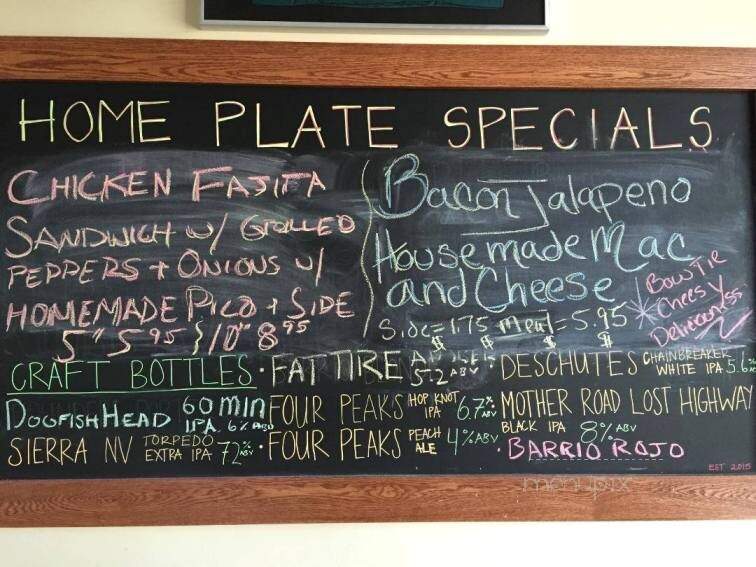 HOME PLATE SPECIALS
CHICKEN FAJITA
SANDWICH w/ GRILLED
PEPPERS + ONIONS w/
HOMEMADE PICO + SIDE
5" 5.95 } 10" 8.95
Bacon Jalapeno
Housemade Mac
and Cheese
Side = 1.75 Meal = 5.95
$ $
Bow Tie
Cheesy
CRAFT BOTTLES
· FAT TIRE 5.2 ABV
· DESCHUTES CHAINBREAKER
WHITE IPA 5.6%
DOGFISH HEAD 60 min
IPA 6% ABV
FOUR PEAKS HOP KNOT
IPA 6.7% ABV
MOTHER ROAD LOST HIGHWAY
BLACK IPA 8% ABV
SIERRA NV TORPEDO
EXTRA IPA 7.2% ABV
· FOUR PEAKS PEACH
ALE 4% ABV
· BARRIO ROJO
EST 2015
menupix